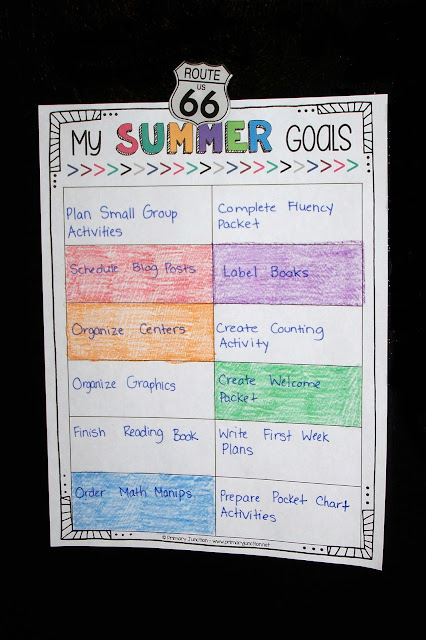 ROUTE
US
66
My SUMMER GOALS
Plan Small Group
Activities
Complete Fluency
Packet
Schedule Blog Posts
Label Books
Organize Centers
Create Counting
Activity
Organize Graphics
Create Welcome
Packet
Finish Reading Book
Write First Week
Plans
Order Math Manips
Prepare Pocket Chart
Activities
© Primary Junction - www.primaryjunction.net